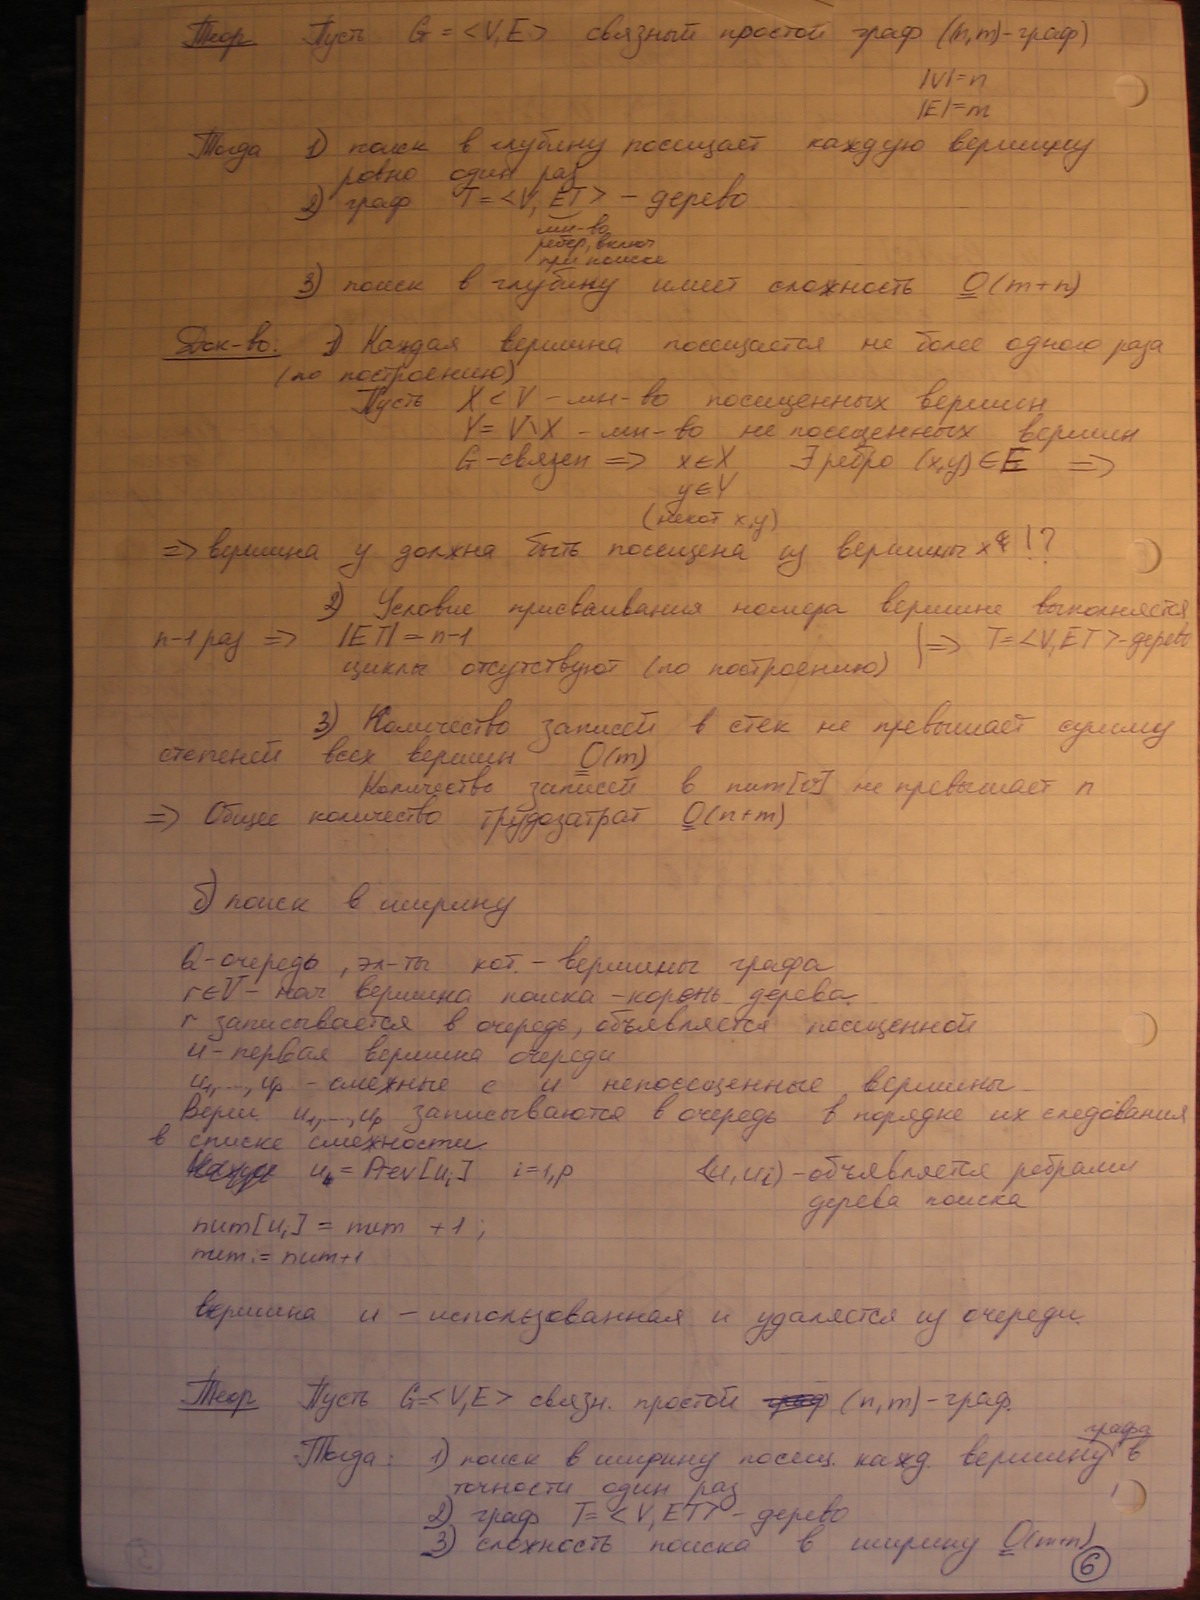 Теор Пусть G = <V,E> связный простой граф ((n,m)-граф)
|V|=n
|E|=m
Тогда 1) поиск в глубину посещает каждую вершину
ровно один раз
2) граф T = <V, ET> - дерево
мн-во
ребер, включ
при поиске
3) поиск в глубину имеет сложность O(m+n)
Док-во. 1) Каждая вершина посещается не более одного раза
(по построению)
Пусть X < V - мн-во посещенных вершин
Y = V\X - мн-во не посещенных вершин
G-связен => x∈X ∃ ребро (x,y)∈E =>
y∈Y
(некот x,y)
=> вершина y должна быть посещена из вершины x !?
2) Условие присваивания номера вершине выполняется
n-1 раз => |ET| = n-1 => T=<V,ET>-дерево
циклы отсутствуют (по построению)
3) Количество записей в стек не превышает сумму
степеней всех вершин O(m)
Количество записей в num[v] не превышает n
=> Общее количество трудозатрат O(n+m)
б) поиск в ширину
Q-очередь, эл-ты кот. - вершины графа
r∈V - нач вершина поиска - корень дерева.
r записывается в очередь, объявляется посещенной
u - первая вершина очереди
u1,...,up - смежные с u непосещенные вершины
Верш. u1,...,up записываются в очередь в порядке их следования
в списке смежности.
u = Prev[ui] i=1,p (u,ui) - объявляется ребрами
дерева поиска
num[ui] = num +1;
num = num+1
вершина u - использованная и удаляется из очереди.
Теор Пусть G=<V,E> связн. простой (n,m)-граф.
Тогда: 1) поиск в ширину посещ. кажд. вершину графа в
точности один раз
2) граф T = <V,ET> - дерево
3) сложность поиска в ширину O(m+n)
6